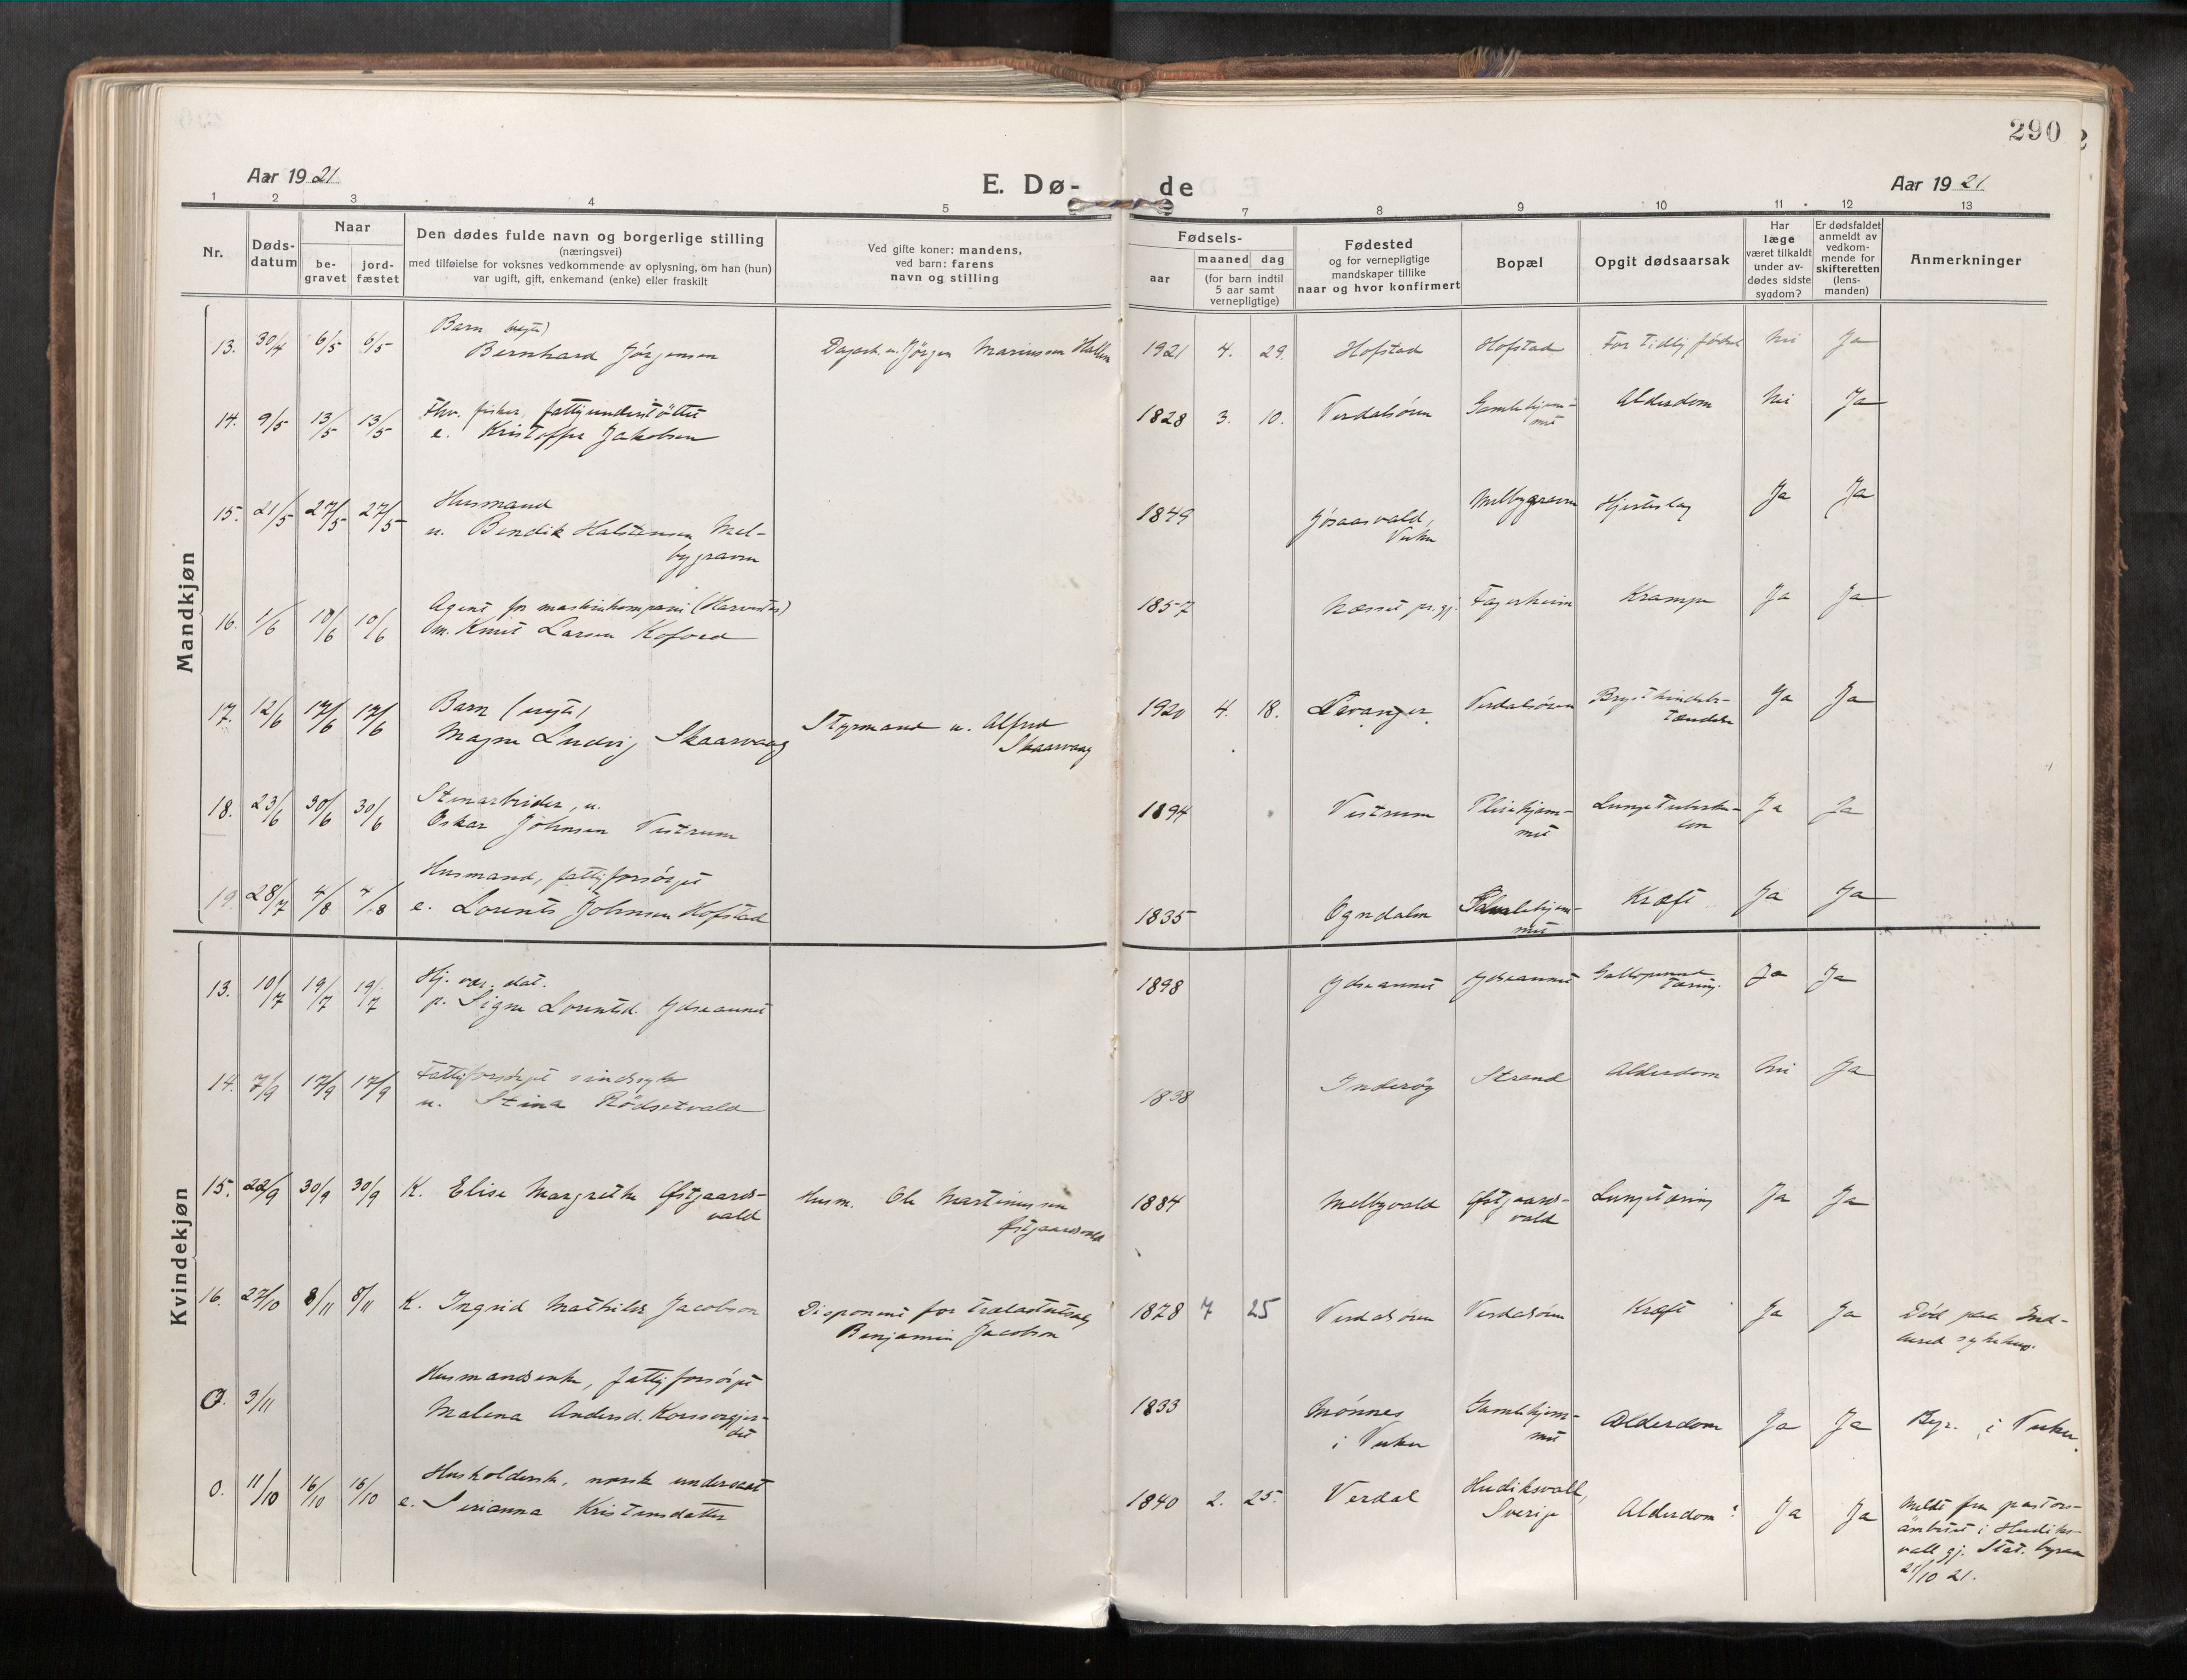 290
Aar 1921
E. Dø-
de
Aar 1921
1 2 3 4 5 7 8 9 10 11 12 13
Nr.
Døds-
datum
Naar
be-
gravet
jord-
fæstet
Den dødes fulde navn og borgerlige stilling
(næringsvei)
med tilføielse for voksnes vedkommende av oplysning, om han (hun)
var ugift, gift, enkemand (enke) eller fraskilt
Ved gifte koner: mandens,
ved barn: farens
navn og stilling
Fødsels-
aar
maaned dag
(for barn indtil
5 aar samt
vernepligtige)
Fødested
og for vernepligtige
mandskaper tillike
naar og hvor konfirmert
Bopæl
Opgit dødsaarsak
Har
læge
været tilkaldt
under av-
dødes sidste
sygdom?
Er dødsfaldet
anmeldt av
vedkom-
mende for
skifteretten
(lens-
manden)
Anmerkninger
Mandkjøn
Barn
13. 30/4 6/5 6/5 Bernhard Jørgensen Jørgen Mariussen 1921 4. 29. Hofstad Hofstad For tidlig født Nei Ja
Fhv. fisker, fattigunderstøttet
14. 9/5 13/5 13/5 e. Kristoffer Jakobsen 1828 3. 10. Verdalsøren Gamlehjem-
met Alderdom Nei Ja
Husmand
15. 21/5 27/5 27/5 u. Bendik Halstensen Mel-
bygraven 1849 Jøsaasvald,
Vuku Melbygraven Hjerteslag Ja Ja
Agent for maskinkompani (Harvester)
16. 1/6 10/6 10/6 m. Knut Larsen Kofoed 1857 Næsset pr.gj. Fagerheim Krampe Ja Ja
Barn
17. 12/6 17/6 17/6 Magne Ludvig Skaarvaag Styrmand u. Alfred
Skaarvaag 1920 4. 18. Levanger Verdalsøren Brysthindebe-
tændelse Ja Ja
Stenarbeider, u.
18. 23/6 30/6 30/6 Oskar Johnsen Vestrum 1894 Vestrum Pleiehjem-
met Lungetuberku-
lose Ja Ja
Husmand, fattigforsørget
19. 28/7 4/8 4/8 e. Lorents Johnsen Hofstad 1835 Ogndalen Gamlehjem-
met Kræft Ja Ja
Kvindekjøn
Hj. vær. dat.
13. 10/7 19/7 19/7 p. Signe Lorentsd. Ydseaunet 1898 Ydseaunet Ydseaunet Galloperende
tæring. Ja Ja
Fattigforsørget sindssyk
14. 7/9 17/9 17/9 u. Stina Rödsetvald 1838 Inderøy Strand Alderdom Nei Ja
15. 22/9 30/9 30/9 K. Elise Margrethe Østgaards-
vald Husm. Ole Martinussen
Østgaardsvald 1884 Melbyvald Østgaards-
vald Lungetæring Ja Ja
16. 27/10 8/11 8/11 K. Ingrid Mathilde Jacobson Disponent for
Benjamin Jacobson 1878 7 25 Verdalsøren Verdalsøren Kræft Ja Ja Død paa Ind-
hered sykehus.
Husmandsenke, fattigforsørget
0. 3/11 Malena Andersd. 1833 Mønnes
i Vuku Gamlehjem-
met Alderdom Ja Ja Begr. i Vuku.
Husholderske, norsk undersaat
0. 11/10 16/10 16/10 e. Serianna Kristensdatter 1840 2. 25. Verdal Hudiksvall,
Sverige Alderdom? Ja Ja Meldt fra pastors-
ämbetet i Hudiks-
vall gj. Stat. byraa
21/10 21.